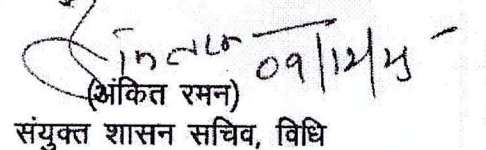 09/12/25
(अंकित रमन)
संयुक्त शासन सचिव, विधि